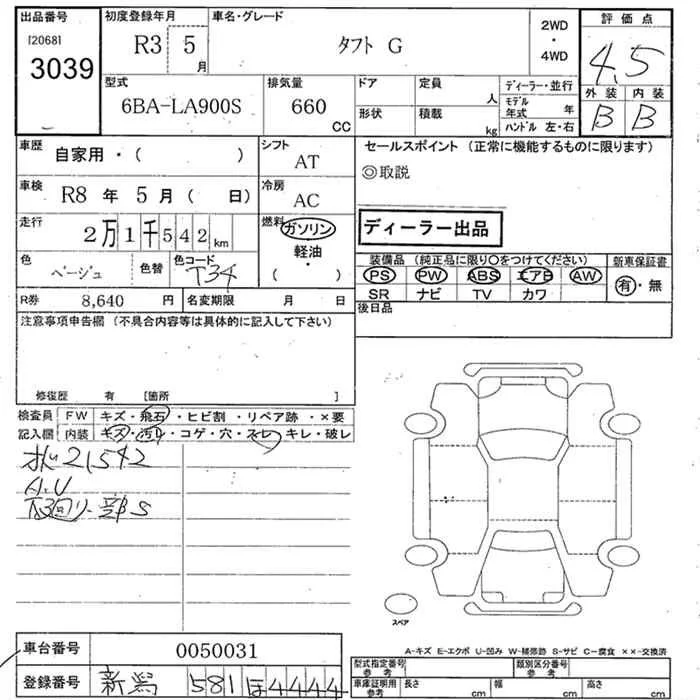 出品番号
[2068]
3039
初度登録年月
R3 5
月
車名・グレード
タフト G
2WD
・
4WD
評価点
4.5
外装 内装
B B
型式
6BA-LA900S
排気量
660
CC
ドア
形状
定員
人
積載
kg
ディーラー・並行
モデル
年式 年
ハンドル 左・右
車歴
自家用・( )
シフト
AT
車検
R8 年 5 月 ( 日)
冷房
AC
走行
2万1千542km
燃料
ガソリン
軽油
・
( )
色
ベージュ
色替
色コード
T34
R券 8,640 円
名変期限 月 日
セールスポイント (正常に機能するものに限ります)
◎取説
ディーラー出品
装備品 (純正品に限り○をつけてください)
PS PW ABS エアB AW
SR ナビ TV カワ
新車保証書
有・無
後日品
注意事項申告欄 (不具合内容等は具体的に記入して下さい)
修復歴 有 [箇所 ]
検査員 FW キズ・飛石・ヒビ割・リペア跡・×要
記入欄 内装 キズ・汚れ・コゲ・穴・スレ・キレ・破レ
21542
A.U
下回り一部S
スペア
A-キズ E-エクボ U-凹み W-補修跡 S-サビ C-腐食 ××-交換済
車台番号 0050031
登録番号 新潟 581 ほ 4444
型式指定番号
参考
類別区分番号
参考
車庫証明用
参考
長さ cm
幅 cm
高さ cm